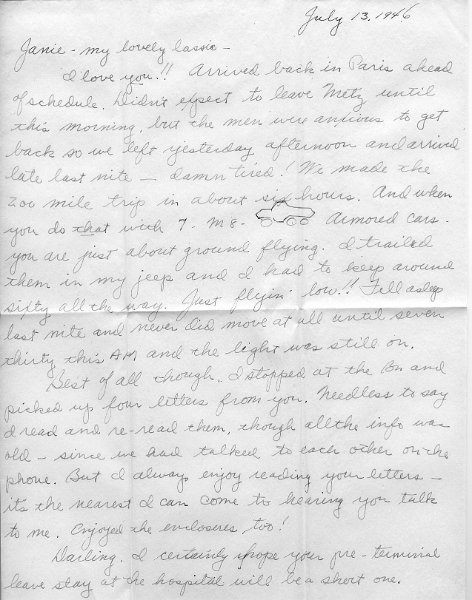 July 13, 1946
Janie - my lovely lassie -
I love you!! Arrived back in Paris ahead
of schedule. Didn't expect to leave Metz until
this morning, but the men were anxious to get
back so we left yesterday afternoon and arrived
late last nite - damn tired! We made the
200 mile trip in about six hours. And when
you do that with 7 - M8 - Armored cars -
you are just about ground flying. I trailed
them in my jeep and I had to keep around
sixty all the way. Just flyin' low!! Fell asleep
last nite and never did move at all until seven
thirty this AM and the light was still on.
Best of all though, I stopped at the Bn and
picked up four letters from you. Needless to say
I read and re-read them, though all the info was
old - since we had talked to each other on the
phone. But I always enjoy reading your letters -
it's the nearest I can come to hearing you talk
to me. Enjoyed the enclosures, too!
Darling, I certainly hope your pre-terminal
leave stay at the hospital will be a short one.